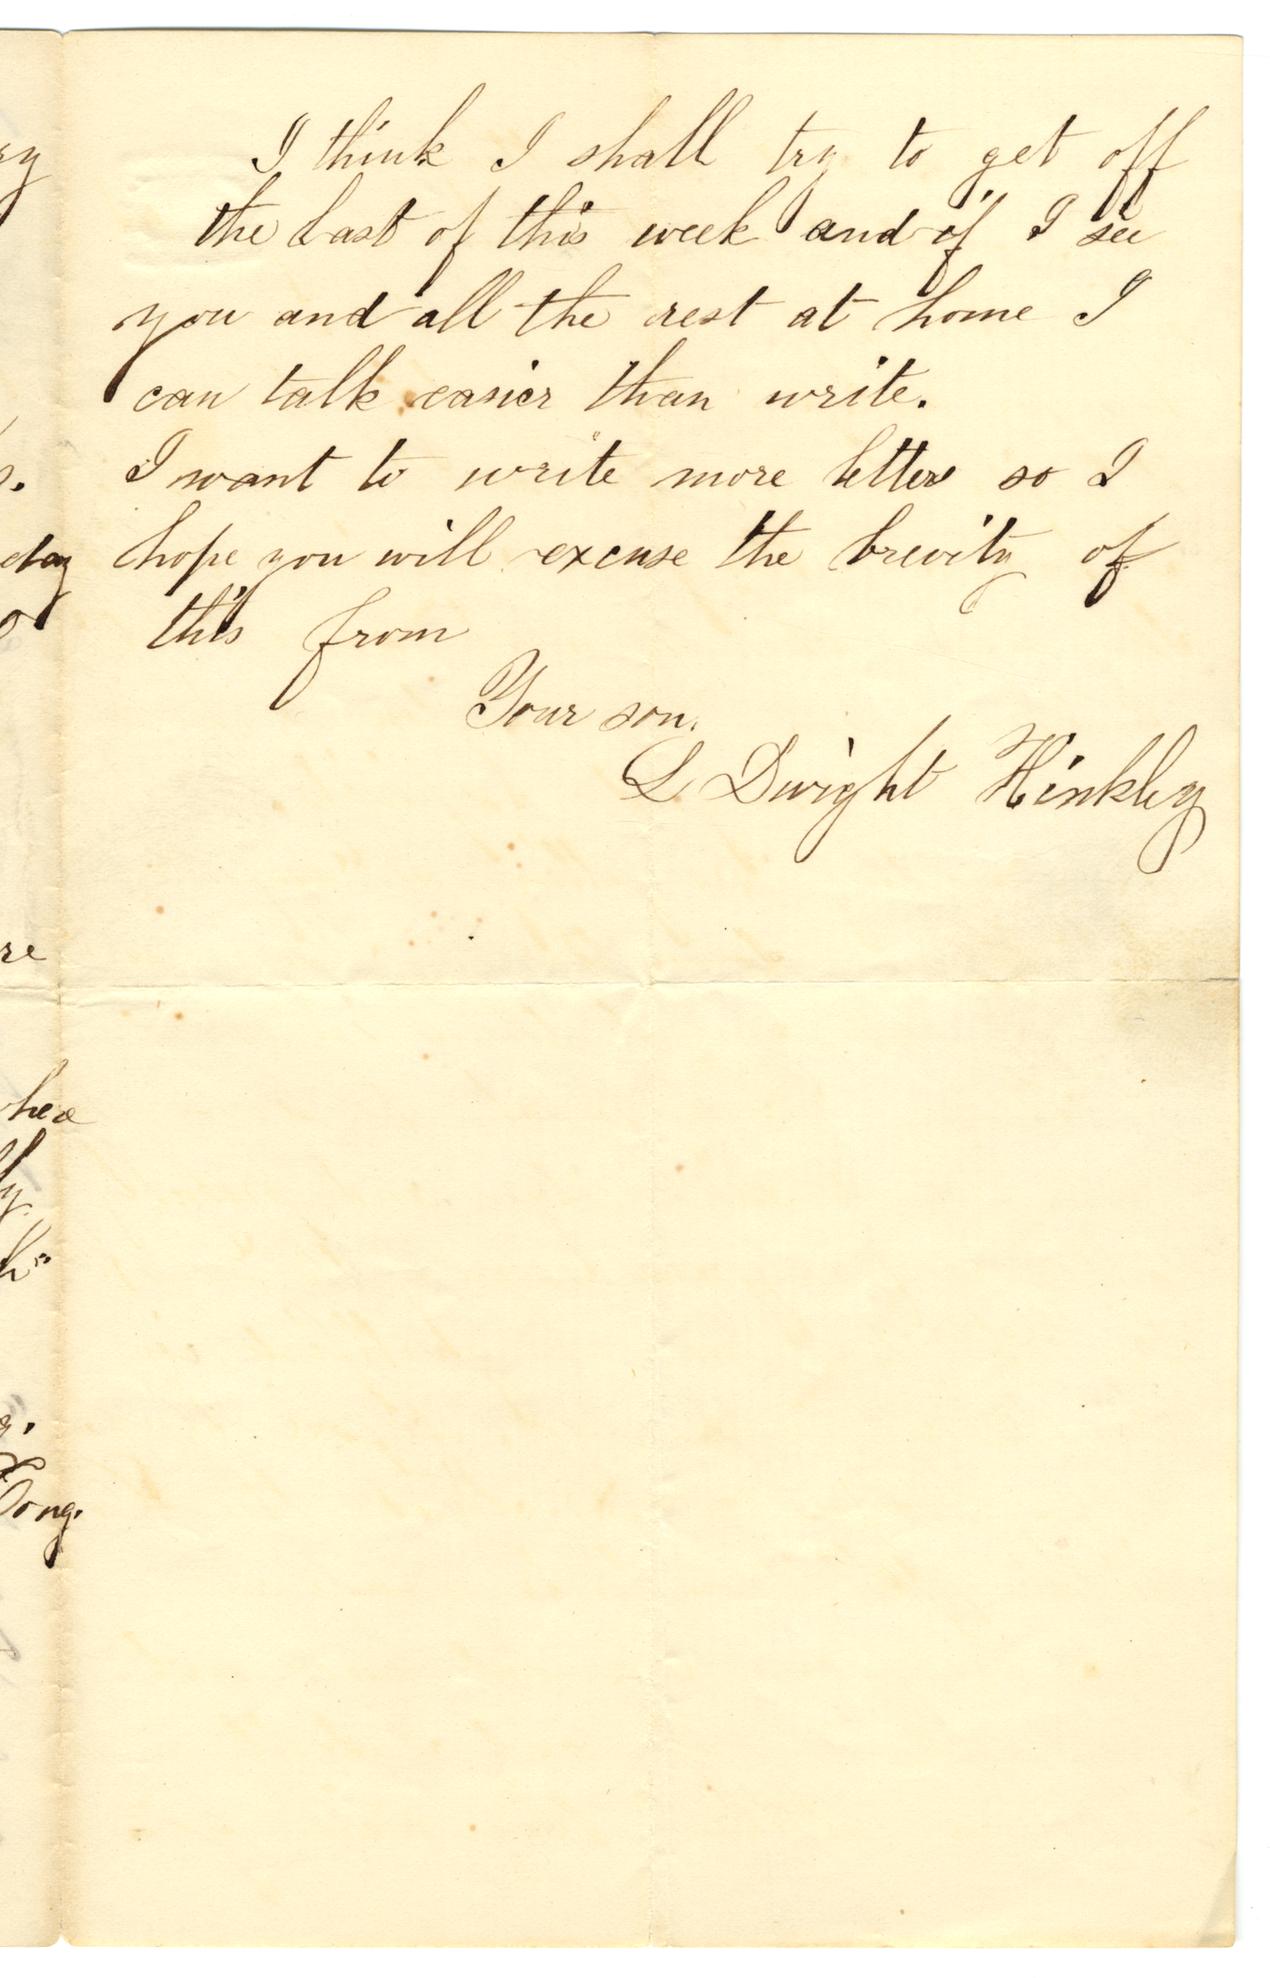 I think I shall try to get off
the last of this week and if I see
you and all the rest at home I
can talk easier than write.
I want to write more letters so I
hope you will excuse the brevity of
this from
Your son.
L Dwight Hinkley
ry
s.
day
re
hea
ly.
k"
r.
Cong.